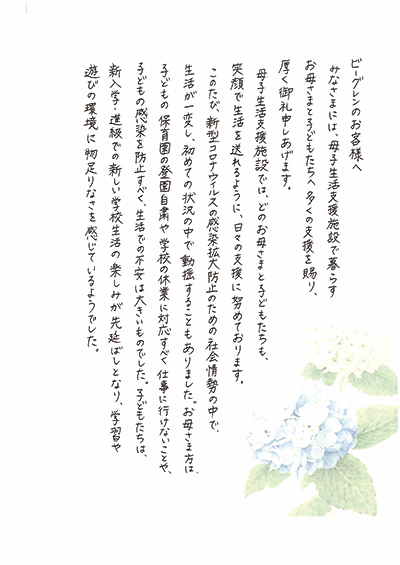 ビーグレンのお客様へ
みなさまには、母子生活支援施設で暮らす
お母さまと子どもたちへ多くの支援を賜り、
厚く御礼申しあげます。
母子生活支援施設では、どのお母さまと子どもたちも、
笑顔で生活を送れるように、日々の支援に努めております。
このたび、新型コロナウィルスの感染拡大防止のための社会情勢の中で、
生活が一変し、初めての状況の中で動揺することもありました。お母さま方は、
子どもの保育園の登園自粛や学校の休業に対応すべく仕事に行けないことや、
子どもの感染を防止すべく、生活での不安は大きいものでした。子どもたちは、
新入学・進級での新しい学校生活の楽しみが先延ばしとなり、学習や
遊びの環境に物足りなさを感じているようでした。